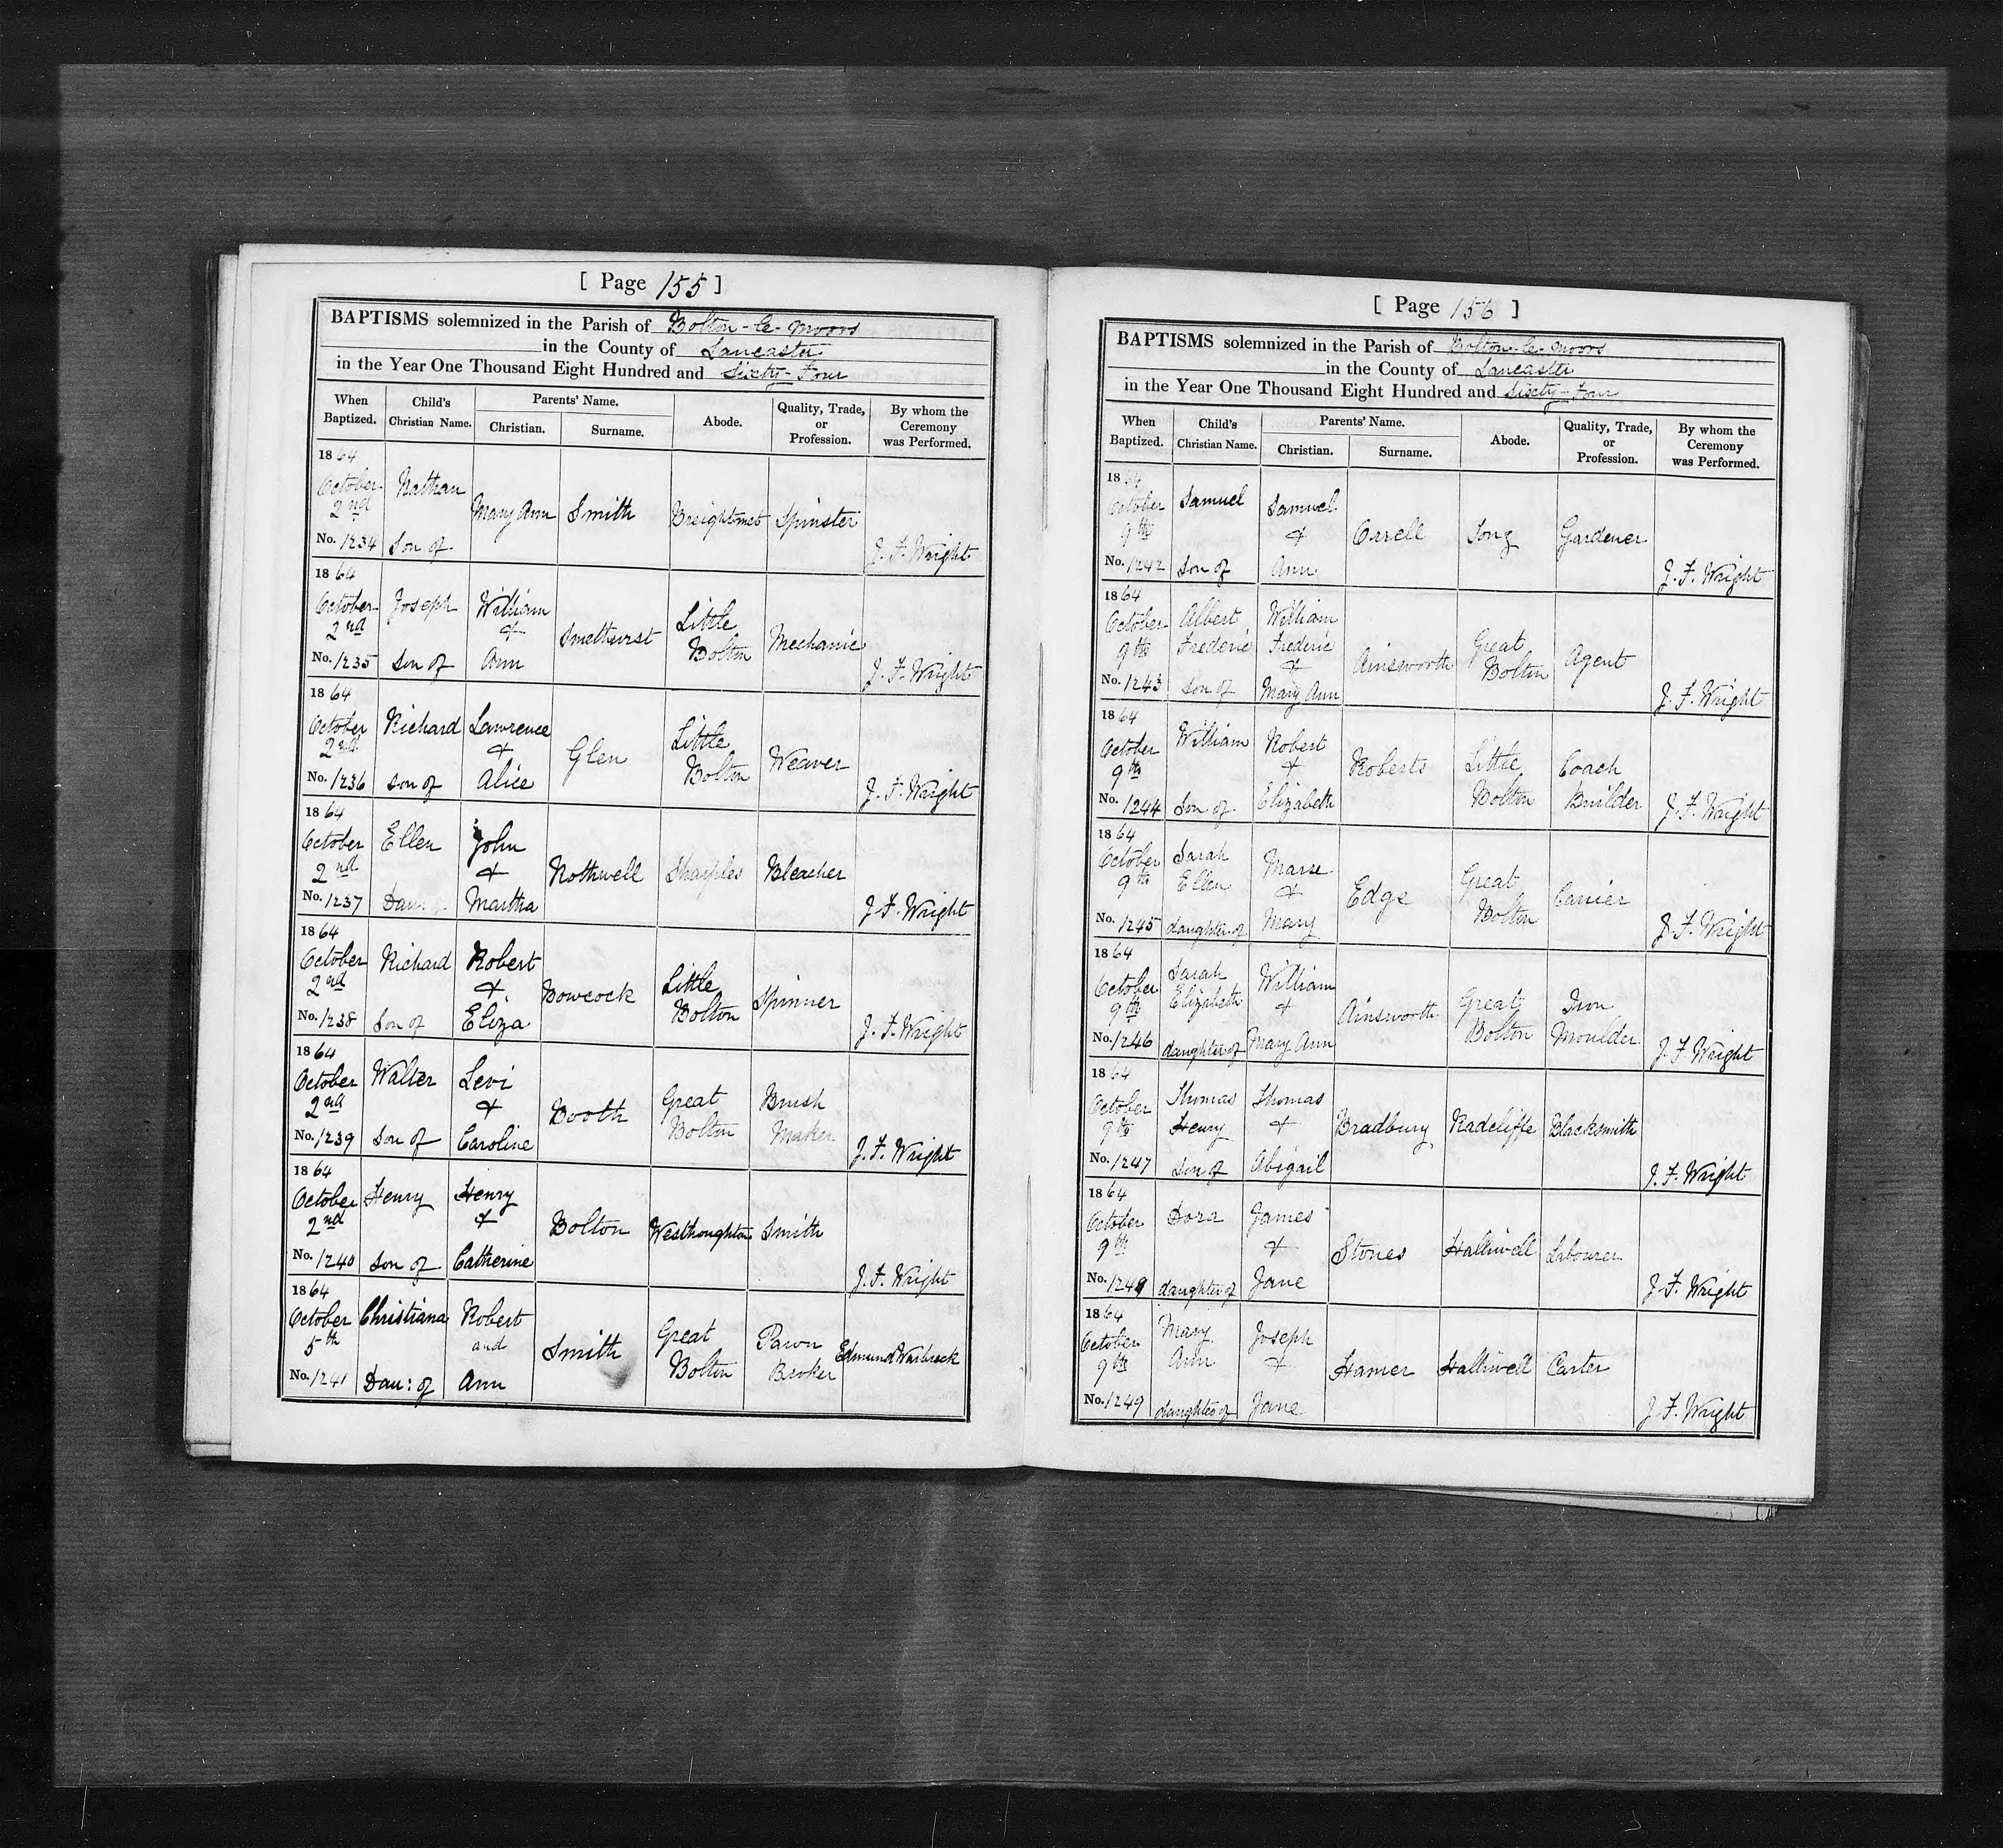 [ Page 155 ]
BAPTISMS solemnized in the Parish of Bolton-le-Moors
in the County of Lancaster
in the Year One Thousand Eight Hundred and Sixty-Four
When Baptized. Child's Christian Name. Parents' Name. Christian. Surname. Abode. Quality, Trade, or Profession. By whom the Ceremony was Performed.
1864
October Nathan
2nd Mary Ann Smith Breightmet Spinster
No. 1234 Son of J. F. Wright
1864
October Joseph William Little
2nd + Smethurst Bolton Mechanic
No. 1235 Son of Ann J. F. Wright
1864
October Richard Lawrence Little
2nd + Glen Bolton Weaver
No. 1236 Son of Alice J. F. Wright
1864
October Ellen John
2nd + Rothwell Sharples Bleacher
No. 1237 Dau: Martha J. F. Wright
1864
October Richard Robert Little
2nd + Bowcock Bolton Spinner
No. 1238 Son of Eliza J. F. Wright
1864
October Walter Levi Great Brush
2nd + Booth Bolton Maker
No. 1239 Son of Caroline J. F. Wright
1864
October Henry Henry
2nd + Bolton Westhoughton Smith
No. 1240 Son of Catherine J. F. Wright
1864
October Christiana Robert Great Pawn
5th and Smith Bolton Broker Edmund Warbreck
No. 1241 Dau: of Ann
[ Page 156 ]
BAPTISMS solemnized in the Parish of Bolton-le-Moors
in the County of Lancaster
in the Year One Thousand Eight Hundred and Sixty-Four
When Baptized. Child's Christian Name. Parents' Name. Christian. Surname. Abode. Quality, Trade, or Profession. By whom the Ceremony was Performed.
1864
October Samuel Samuel
9th + Orrell Tong Gardener
No. 1242 Son of Ann J. F. Wright
1864
October Albert William Great
9th Frederic Frederic + Ainsworth Bolton Agent
No. 1243 Son of Mary Ann J. F. Wright
1864
October William Robert Little Coach
9th + Roberts Bolton Builder
No. 1244 Son of Elizabeth J. F. Wright
1864
October Sarah Great
9th Ellen + Edge Bolton Carrier
No. 1245 daughter of Mary J. F. Wright
1864
October Sarah William Great Iron
9th Elizabeth + Ainsworth Bolton Moulder
No. 1246 daughter of Mary Ann J. F. Wright
1864
October Thomas Thomas
9th Henry + Bradbury Radcliffe Blacksmith
No. 1247 Son of Abigail J. F. Wright
1864
October Dora James
9th + Stones Halliwell Labourer
No. 1248 daughter of Jane J. F. Wright
1864
October Mary Joseph
9th Ann + Hamer Halliwell Carter
No. 1249 daughter of Jane J. F. Wright